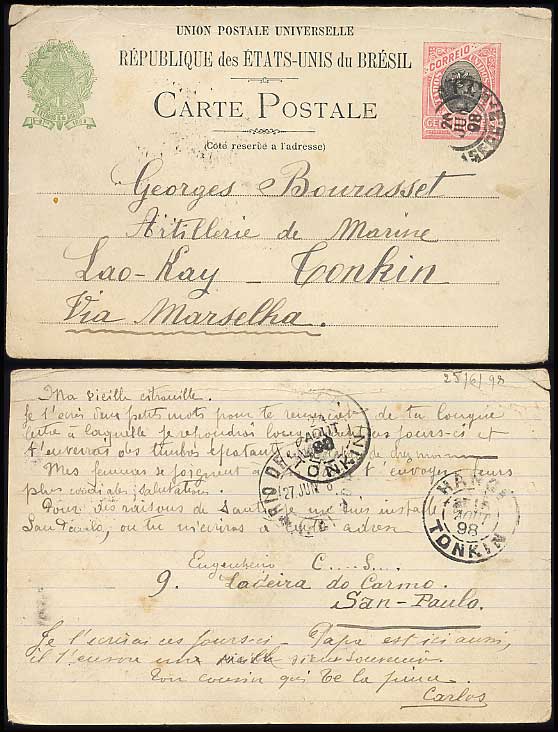 UNION POSTALE UNIVERSELLE
RÉPUBLIQUE des ÉTATS-UNIS du BRÉSIL
CARTE POSTALE
(Coté reservé a l'adresse)
CORREIO
JUN
98
Georges Bourasset
Artillerie de Marine
Lao-Kay - Tonkin
Via Marselha.
25/6/98
Ma vieille citrouille.
Je t'écris deux petits mots pour te remercier de ta longue
lettre à laquelle je répondrai ces jours-ci et
t'enverrai des timbres épatant
Mes se joignent t'envoyer leurs
plus cordiales salutations.
Pour des raisons de santé je me suis installé
San Paulo, ou tu m'écriras a
AOUT
98
TONKIN
RIO DE
27 JUN
HANOI
AOUT
98
TONKIN
Engenheiro C...S...
9. Ladeira do Carmo.
San-Paulo.
Je t'écrirai ces jours-ci. Papa est ici aussi,
il t'envoie une vieux souvenir.
Ton cousin qui te la
Carlos